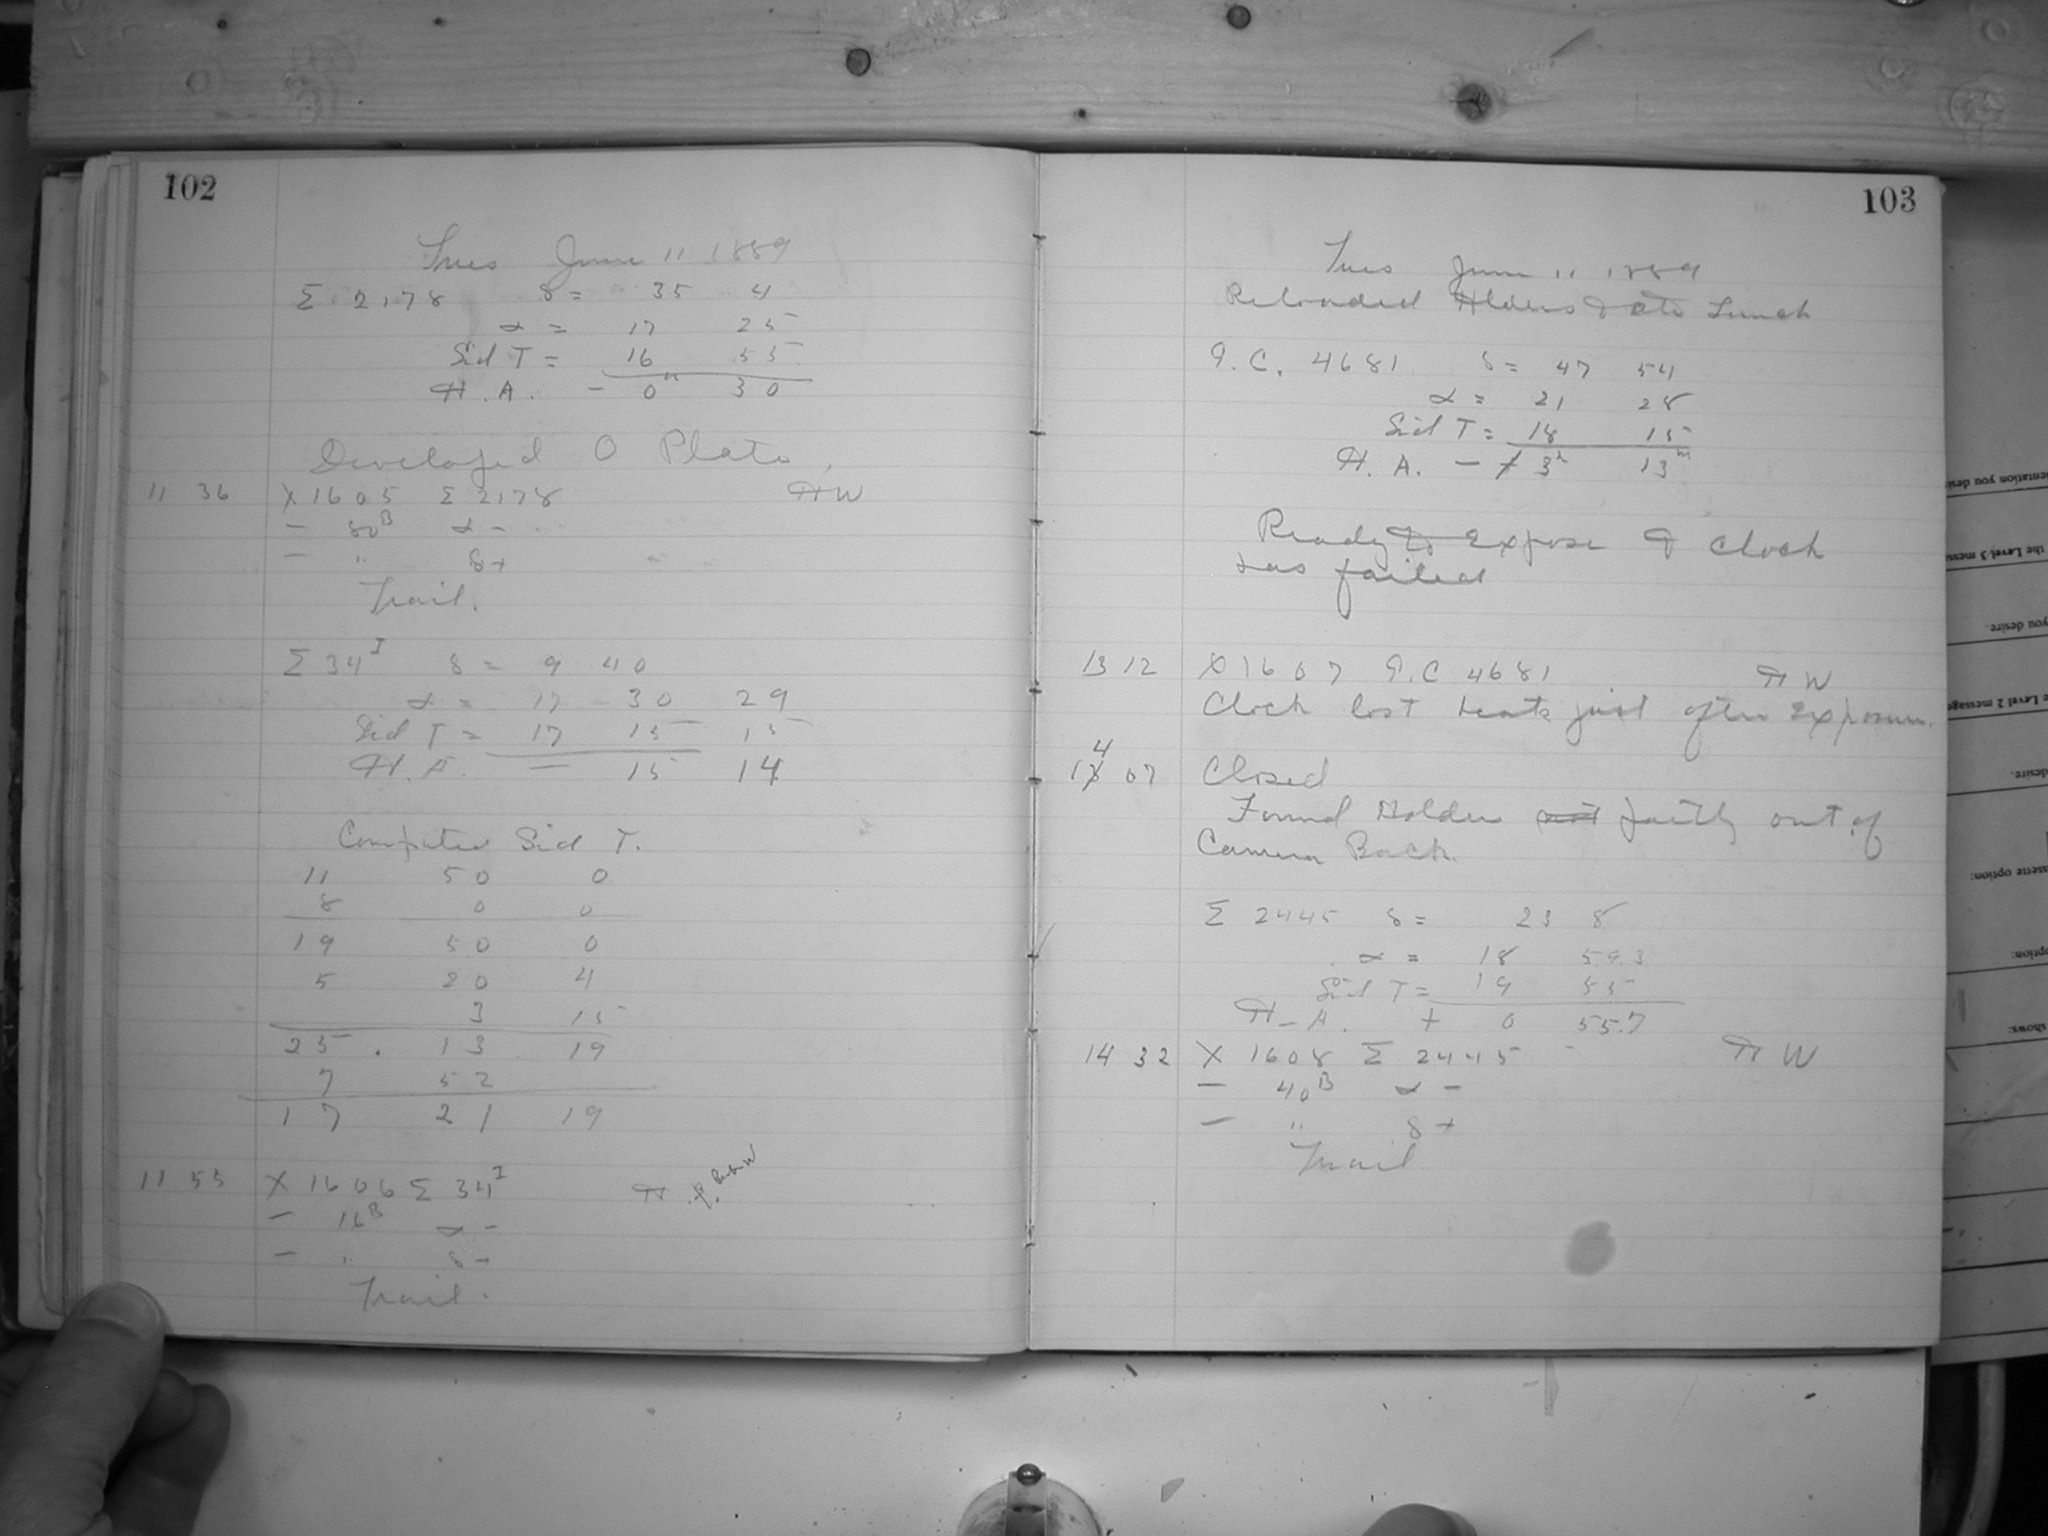 102
Tues June 11 1889
Σ 2178 δ = 35 4
α = 17 25
Sid T = 16 55
H. A. - 0ʰ 30
Developed O Plate.
11 36 X 1605 Σ 2178 HW
- 80ᴮ α -
- " δ +
Trail.
Σ 34ᴵ δ = 9 40
α = 17 30 29
Sid T = 17 15 15
H. A. - 15 14
Computed Sid T.
11 50 0
8 0 0
19 50 0
5 20 4
3 15
25 . 13 19
7 52
17 21 19
11 53 X 1606 Σ 34ᴵ H
- 16ᴮ α -
- " δ -
Trail.
103
Tues June 11 1889
Reloaded Holders & ate Lunch
G. C. 4681 δ = 47 54
α = 21 28
Sid T = 18 15
H. A. - 3ʰ 13ᵐ
Ready to Expose & Clock
has failed
13 12 X 1607 G. C 4681 HW
Clock lost beats just after Exposure.
14 07 Closed
Found Holder not partly out of
Camera Back.
Σ 2445 δ = 23 8
α = 18 59.3
Sid T = 19 55
H. A. + 0 55.7
14 32 X 1608 Σ 2445 HW
- 40ᴮ α -
- " δ +
Trail